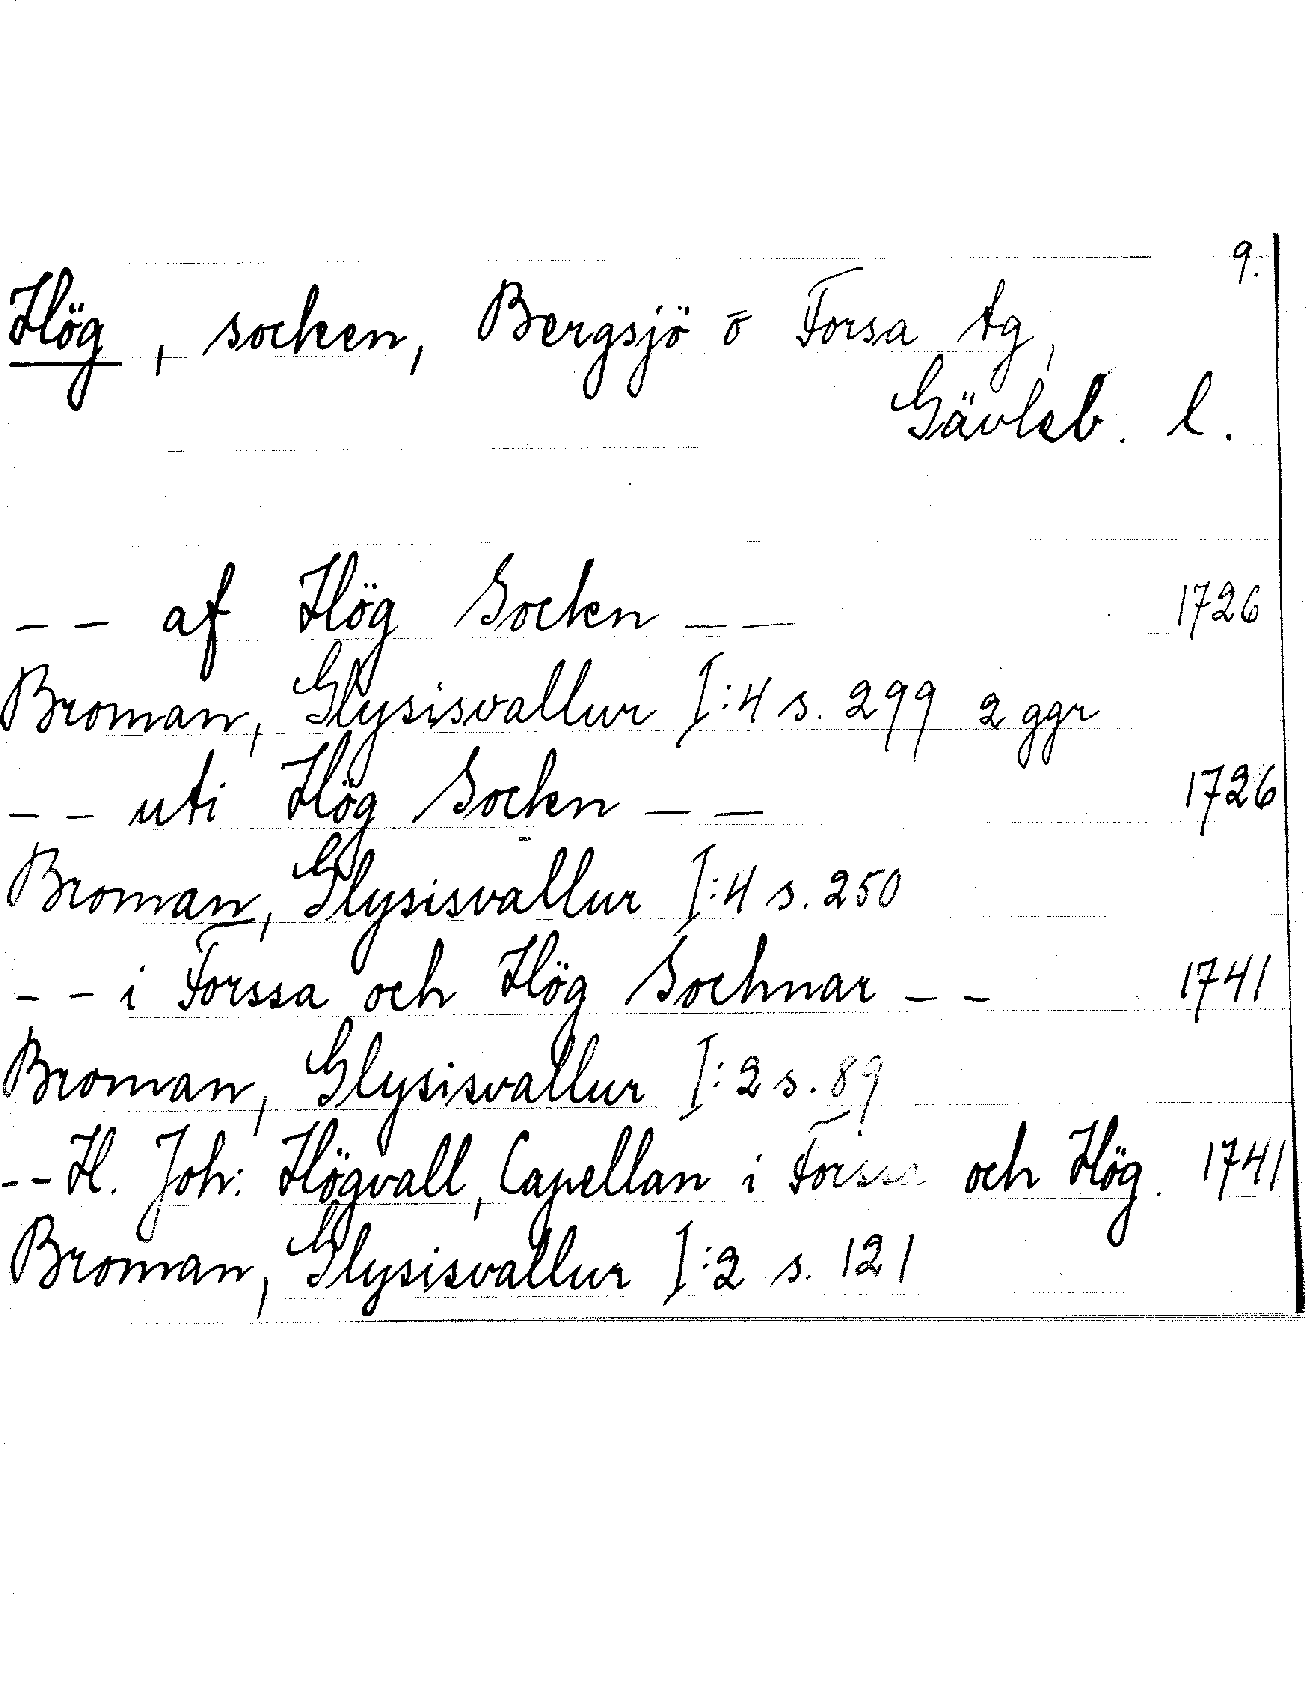 9.
Hög, socken, Bergsjö o Forsa tg,
Gävleb. l.
-- af Hög Sockn -- 1726
Broman, Glysisvallur I:4 s. 299 2 ggr
-- uti Hög Sockn -- 1726
Broman, Glysisvallur I:4 s. 250
-- i Forssa och Hög Sochnar -- 1741
Broman, Glysisvallur I:2 s. 89
-- H. Joh: Högvall, Capellan i Forssa och Hög. 1741
Broman, Glysisvallur I:2 s. 121